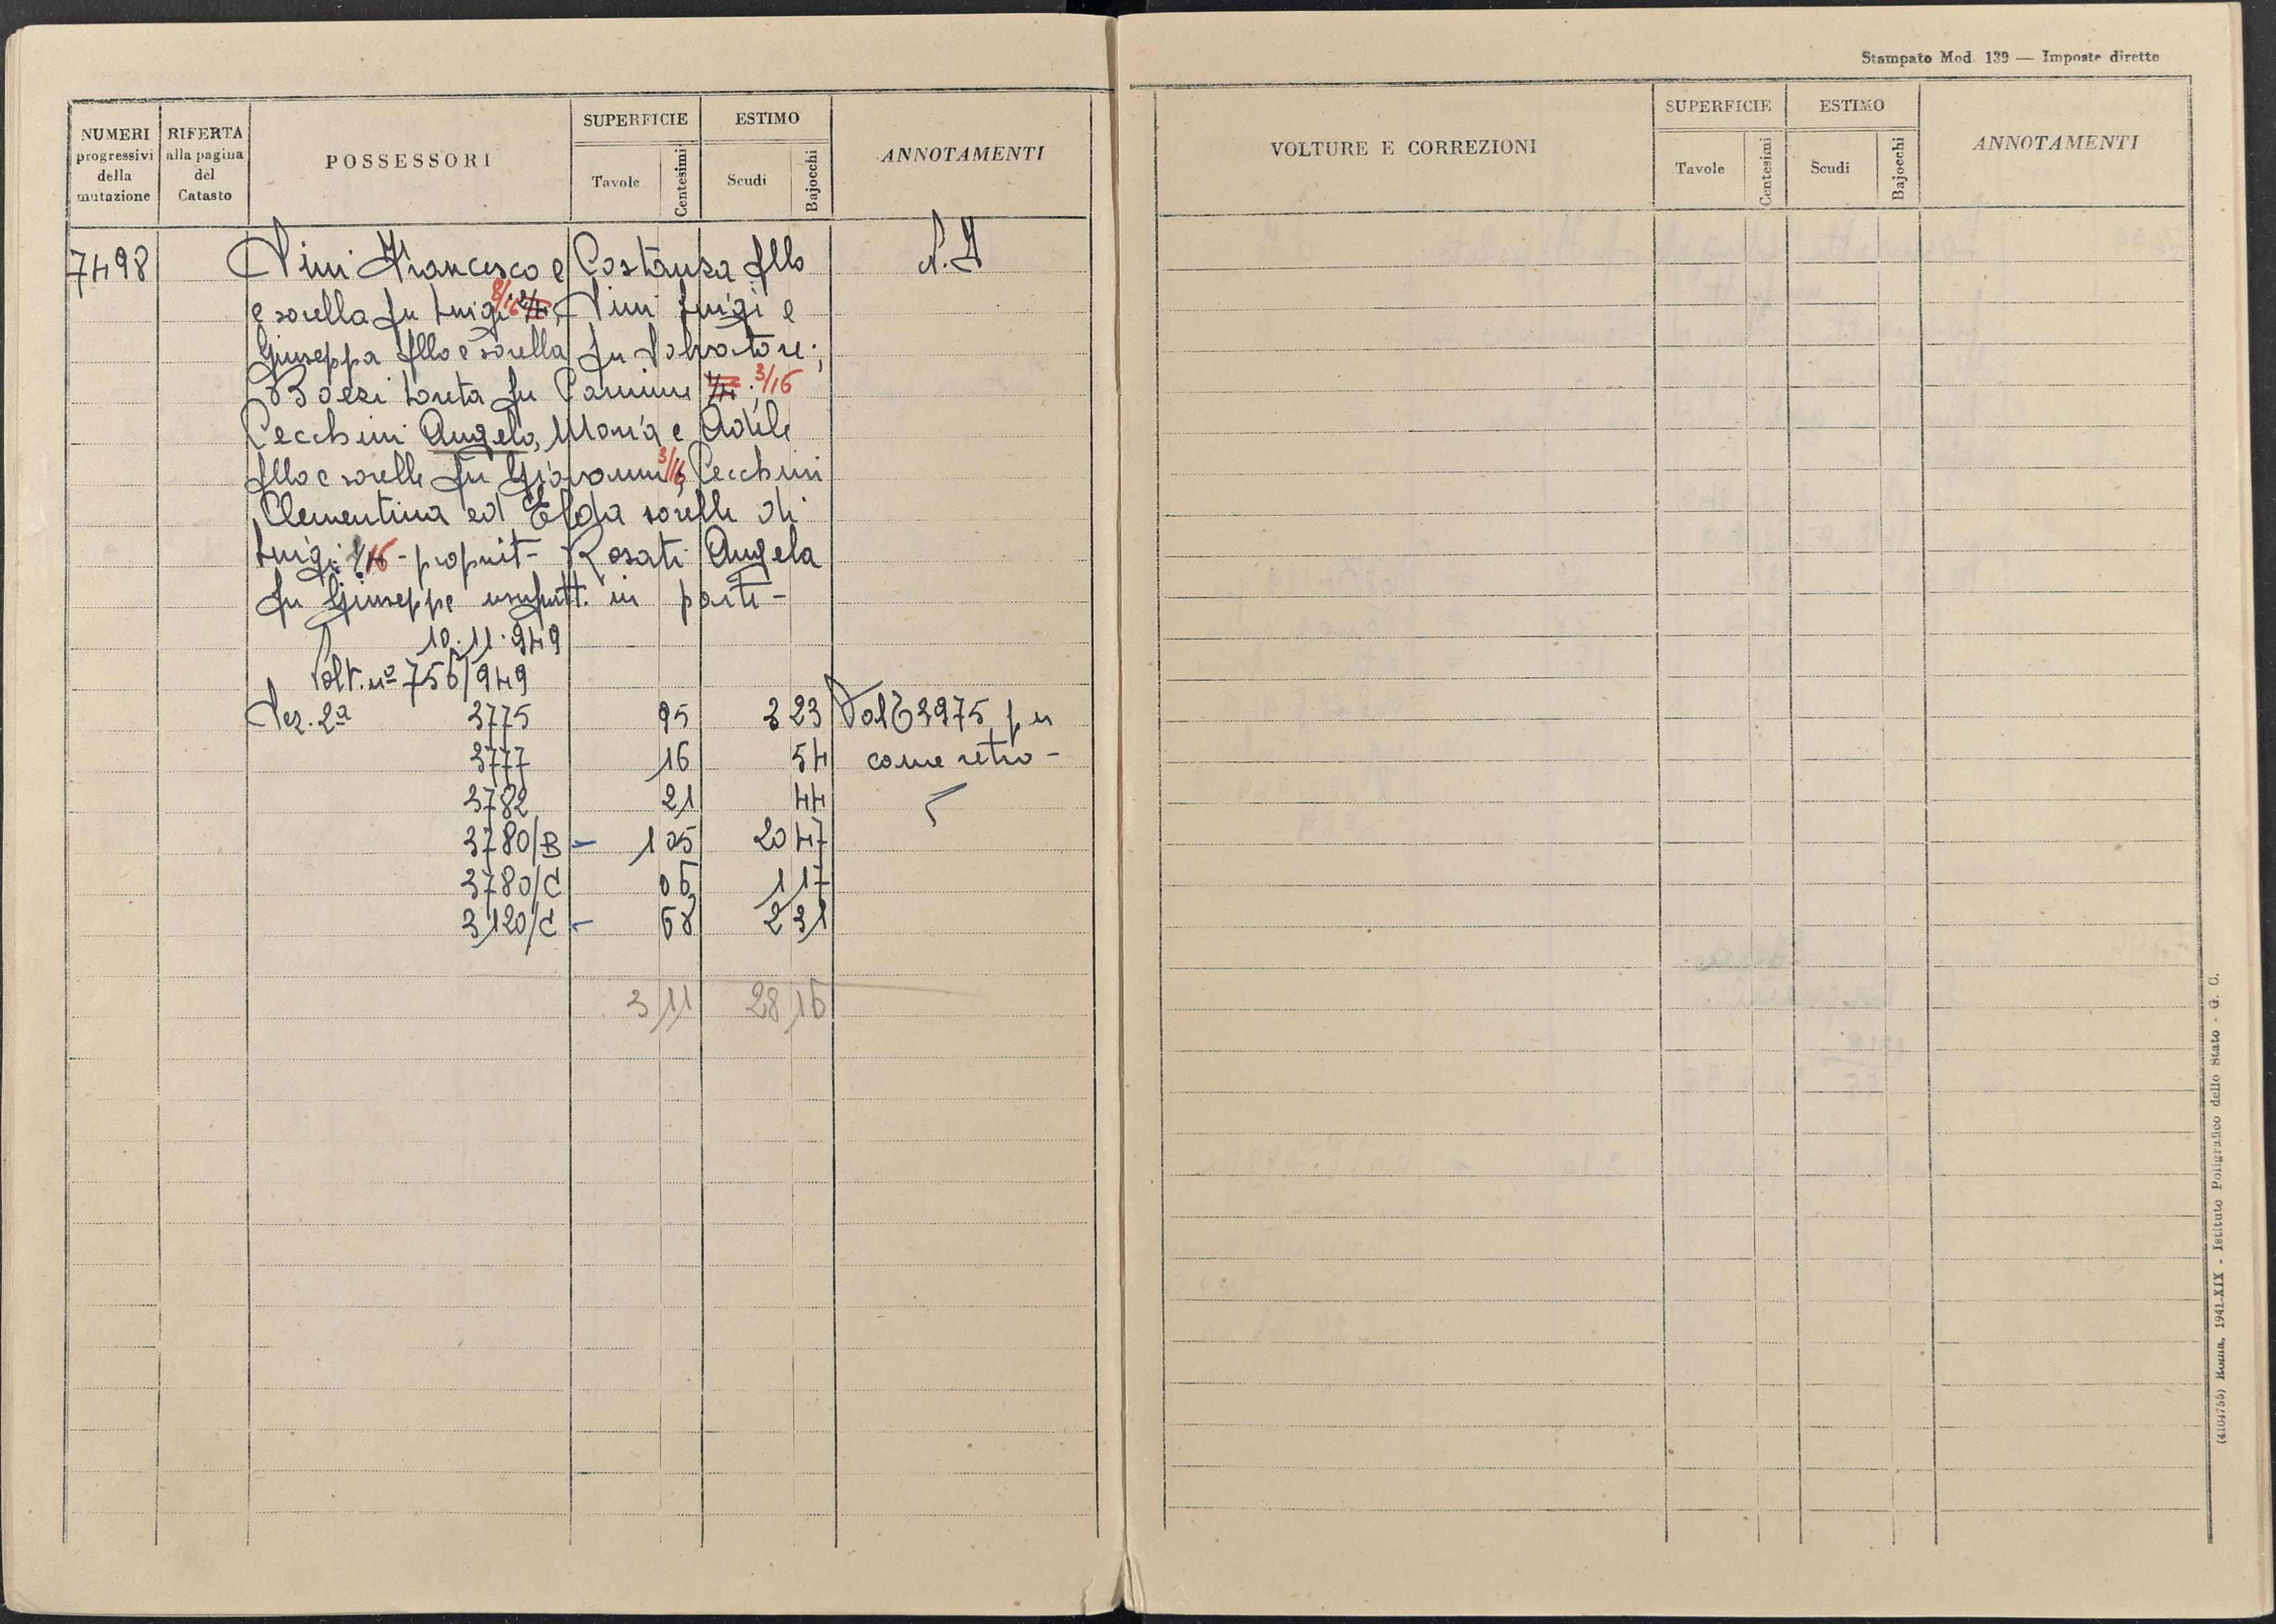 NUMERI progressivi della mutazione
RIFERTA alla pagina del Catasto
POSSESSORI
SUPERFICIE
Tavole
Centesimi
ESTIMO
Scudi
Bajocchi
ANNOTAMENTI
7498 Vini Francesco e Costanza fllo
e sorella fu Luigi 8/16; Vini Luigi e
Giuseppa fllo e sorella fu Salvatore;
Boezi Loreta fu Carmine 3/16
Cecchini Angelo, Maria e Adele
fllo e sorelle fu Giovanni 3/16, Cecchini
Clementina ed Elda sorelle di
Luigi /16 - propriet - Rosati Angela
fu Giuseppe usufrutt. in parte -
10.11.949
Volt. nº 756/949
Sez. 2ª 3775 95 3 23 Volt 3975 per
3777 16 54 come retro -
3782 21 44
3780/B - 1 05 20 47
3780/C 06 1 17
3120/C - 68 2 31
3 11 28 16
Stampato Mod. 139 — Imposte dirette
VOLTURE E CORREZIONI
SUPERFICIE
Tavole
Centesimi
ESTIMO
Scudi
Bajocchi
ANNOTAMENTI
(4104755) Roma, 1941-XIX - Istituto Poligrafico dello Stato - G. C.